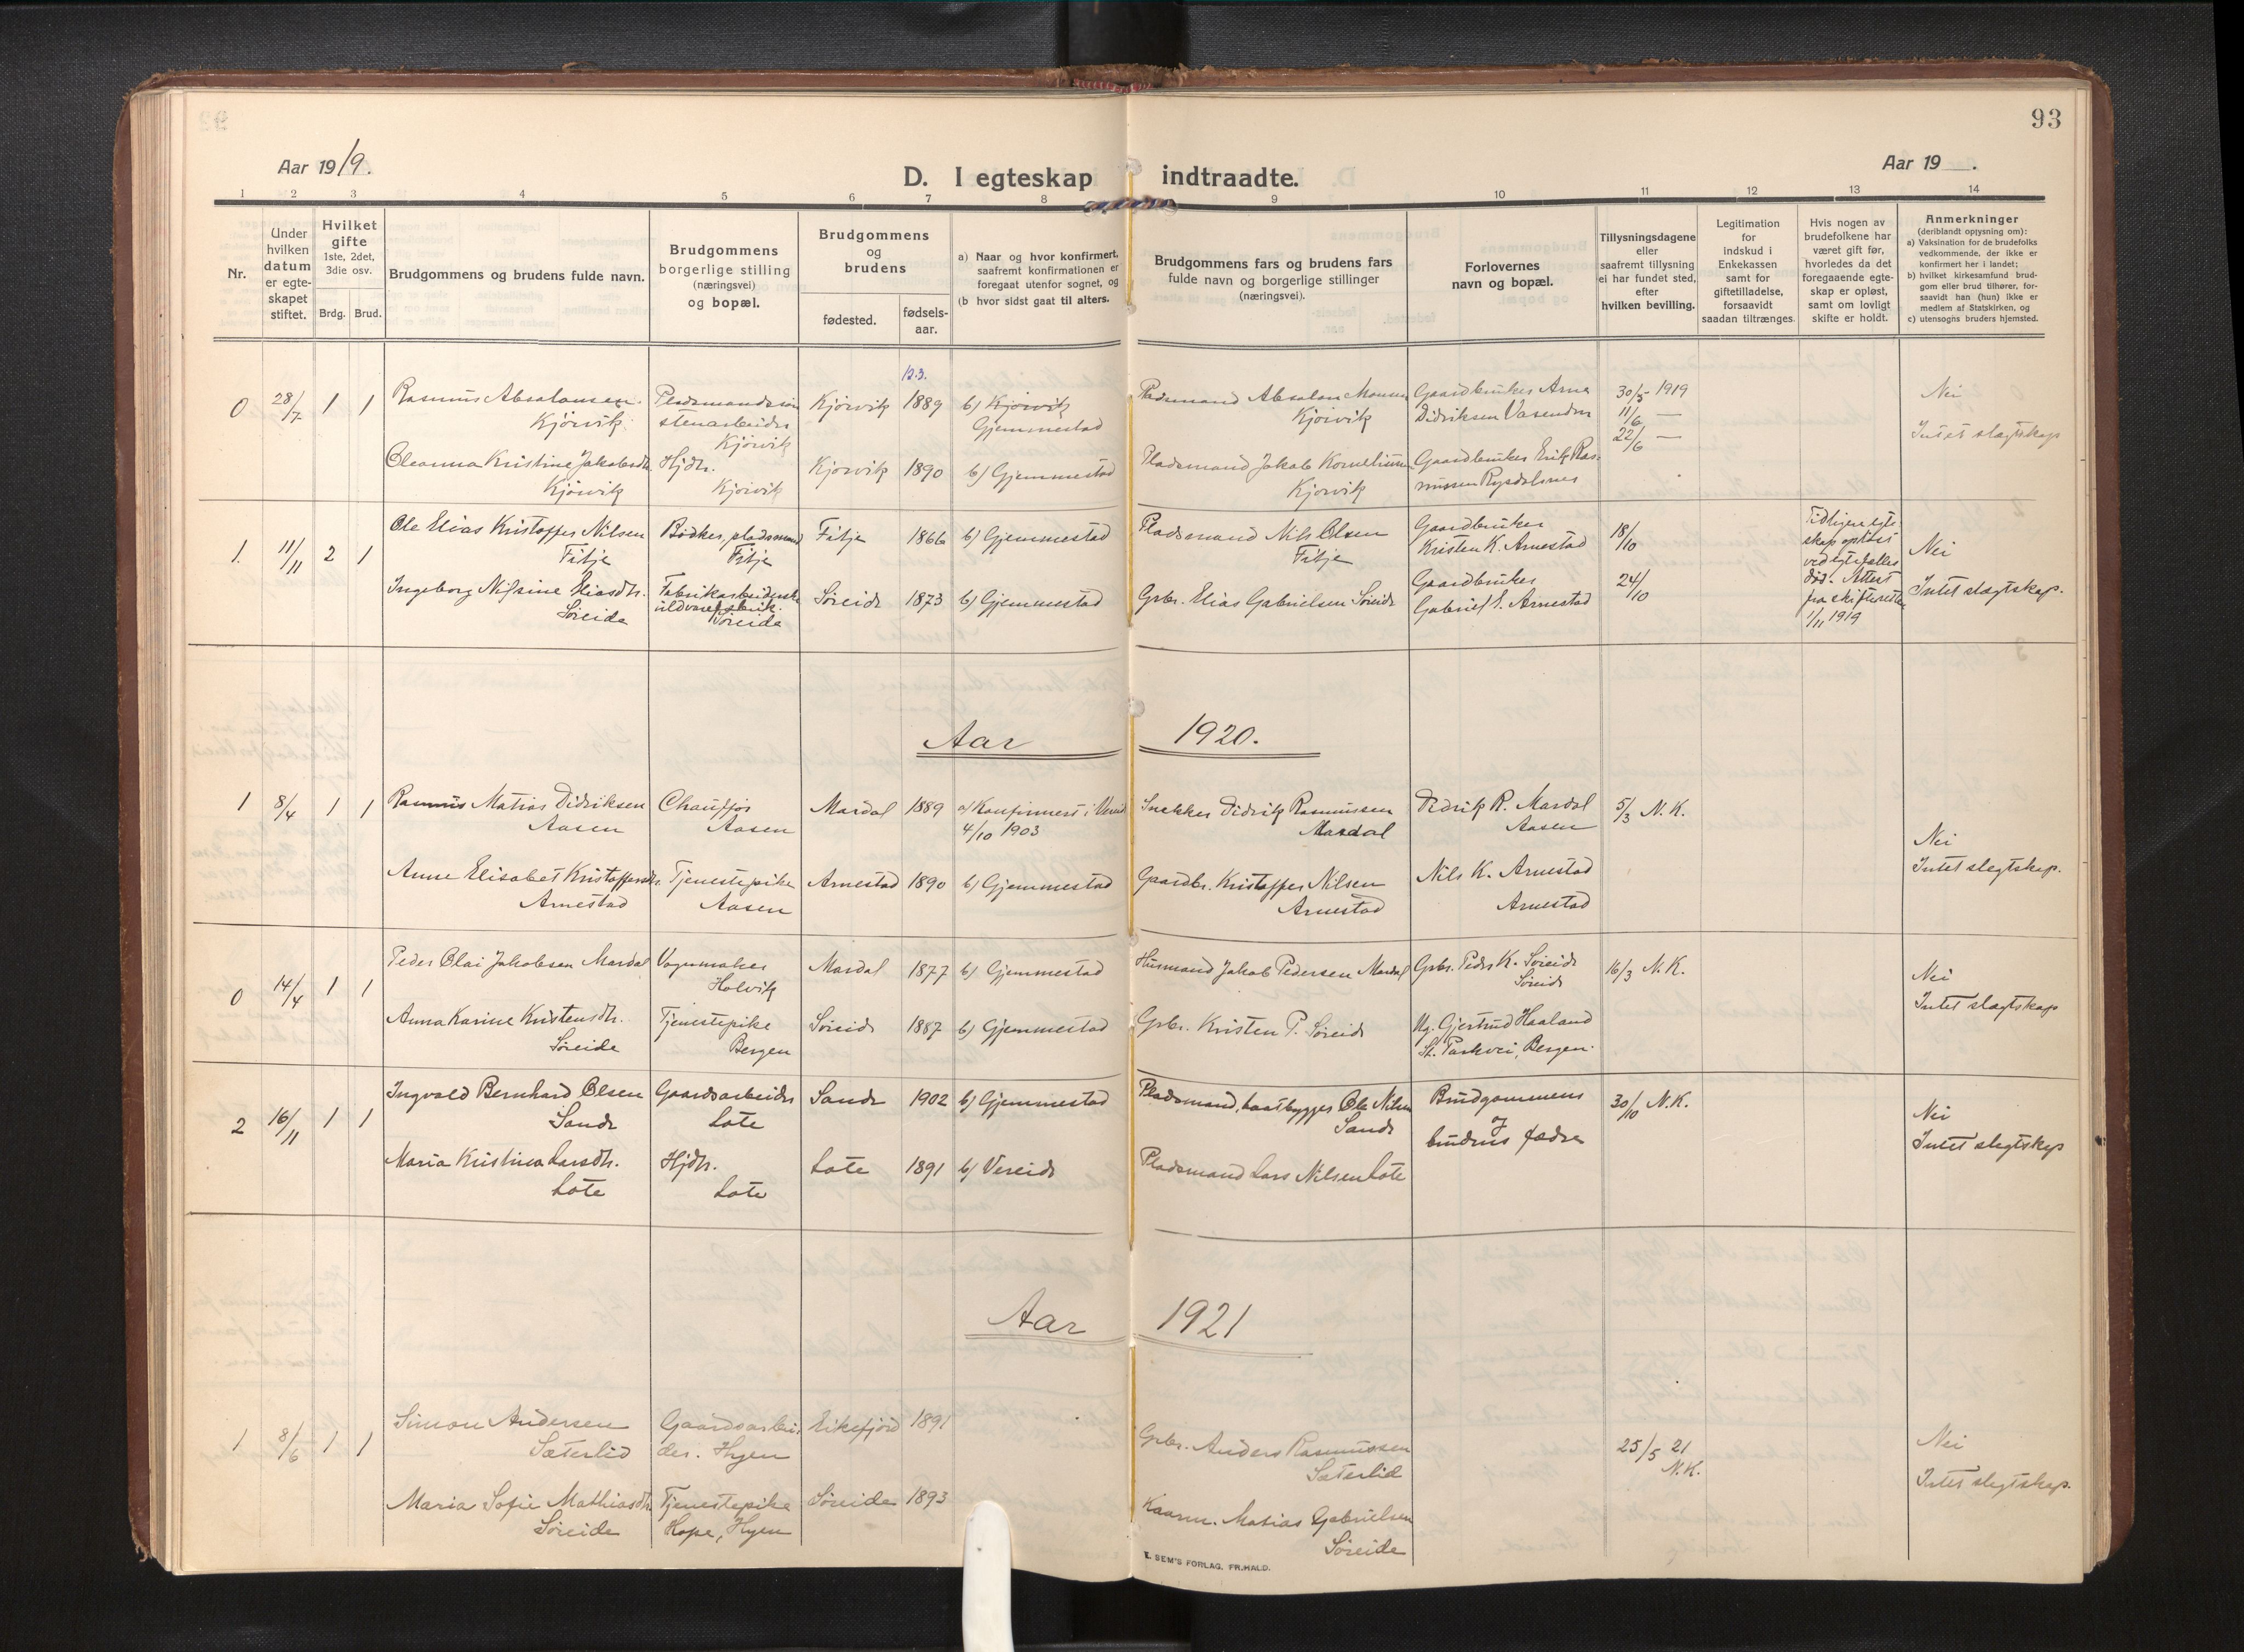 93
Aar 1919.
D. I egteskap indtraadte.
Aar 19 .
1 2 3 4 5 6 7 8 9 10 11 12 13 14
Nr.
Under hvilken datum er egte-skapet stiftet.
Hvilket gifte 1ste, 2det, 3die osv.
Brdg. Brud.
Brudgommens og brudens fulde navn.
Brudgommens borgerlige stilling (næringsvei) og bopæl.
Brudgommens og brudens
fødested.
fødsels-aar.
a) Naar og hvor konfirmert, saafremt konfirmationen er foregaat utenfor sognet, og
(b hvor sidst gaat til alters.
Brudgommens fars og brudens fars fulde navn og borgerlige stillinger (næringsvei).
Forlovernes navn og bopæl.
Tillysningsdagene eller saafremt tillysning ei har fundet sted, efter hvilken bevilling.
Legitimation for indskud i Enkekassen samt for giftetilladelse, forsaavidt saadan tiltrænges.
Hvis nogen av brudefolkene har været gift før, hvorledes da det foregaaende egte-skap er opløst, samt om lovligt skifte er holdt.
Anmerkninger
(deriblandt oplysning om):
a) Vaksination for de brudefolks vedkommende, der ikke er konfirmert her i landet;
b) hvilket kirkesamfund brud-gom eller brud tilhører, for-saavidt han (hun) ikke er medlem af Statskirken, og
c) utensogns bruders hjemsted.
0 28/7 1 1 Rasmus Absalonsen Pladsmandssøn Kjørvik 12.3. 1889 b) Kjørvik Pladsmand Absalon Monsen Gaardbruker Arne 30/5 1919 Nei
Kjørvik stenarbeider Gjemmestad Kjørvik Didriksen Vasenden 11/6 —
Kjørvik 22/6 — Intet slegtskap
Oleanna Kristine Jakobsdtr. Hjdtr. Kjørvik 1890 b) Gjemmestad Pladsmand Jakob Kornelius Gaardbruker Erik Ras-
Kjørvik Kjørvik Kjørvik mussen Rysdalsnes
1. 11/11 2 1 Ole Elias Kristoffer Nilsen Bødker, pladsmand Fitje 1866 b) Gjemmestad Pladsmand Nils Olsen Gaardbruker 18/10 Tidligere egte-
Fitje Fitje Fitje Kristen K. Arnestad skap opløst Nei
ved egtefælles
Ingeborg Nilsine Eliasdtr. Fabrikarbeiderske Søreide 1873 b) Gjemmestad Grbr. Elias Gabrielsen Søreide Gaardbruker 24/10 død. Attest Intet slegtskap.
Søreide uldvarefabrik. Gabriel E. Arnestad fra skifteretten
Søreide 1/11 1919
Aar 1920.
1 8/4 1 1 Rasmus Matias Didriksen Chauffør Mardal 1889 a) Konfirmert i Vereide Snekker Didrik Rasmussen Didrik R. Mardal 5/3 N.K.
Aasen Aasen 4/10 1903 Mardal Aasen
Nei
Anne Elisabet Kristoffersdtr. Tjenestepike Arnestad 1890 b) Gjemmestad Gaardbr. Kristoffer Nilsen Nils K. Arnestad Intet slegtskap.
Arnestad Aasen Arnestad Arnestad
0 14/4 1 1 Peder Olai Jakobsen Mardal Vognmaker Mardal 1877 b) Gjemmestad Husmand Jakob Pedersen Mardal Grbr. Peder K. Søreide 16/3 N.K. Nei
Holvik Søreide
Anna Karine Kristensdtr. Tjenestepike Søreide 1887 b) Gjemmestad Grbr. Kristen P. Søreide Ug. Gjertrud Haaland Intet slegtskap
Søreide Bergen St. Parkvei, Bergen.
2 16/11 1 1 Ingvald Bernhard Olsen Gaardsarbeider Sande 1902 b) Gjemmestad Pladsmand, baatbygger Ole Nilsen Brudgommens 30/10 N.K. Nei
Sande Lote Sande og
brudens fædre Intet slegtskap
Maria Kristina Larsdtr. Hjdtr. Lote 1891 b) Vereide Pladsmand Lars Nilsen Lote
Lote Lote
Aar 1921
1 8/6 1 1 Simon Andersen Gaardsarbei- Eikefjord 1891 Grbr. Anders Rasmussen 25/5 21 Nei
Sæterlid der. Hyen Sæterlid N.K.
Maria Sofie Mathiasdtr. Tjenestepike Søreide 1893 Kaarm. Matias Gabrielsen Intet slegtskap.
Søreide Hope, Hyen Søreide
E. SEM'S FORLAG. FR.HALD.